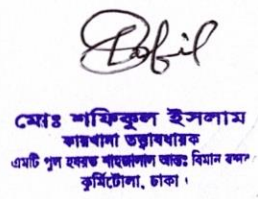 মোঃ শফিকুল ইসলাম
কারখানা তত্ত্বাবধায়ক
এমটি পুল হযরত শাহজালাল আন্তঃ বিমান বন্দর
কুর্মিটোলা, ঢাকা।